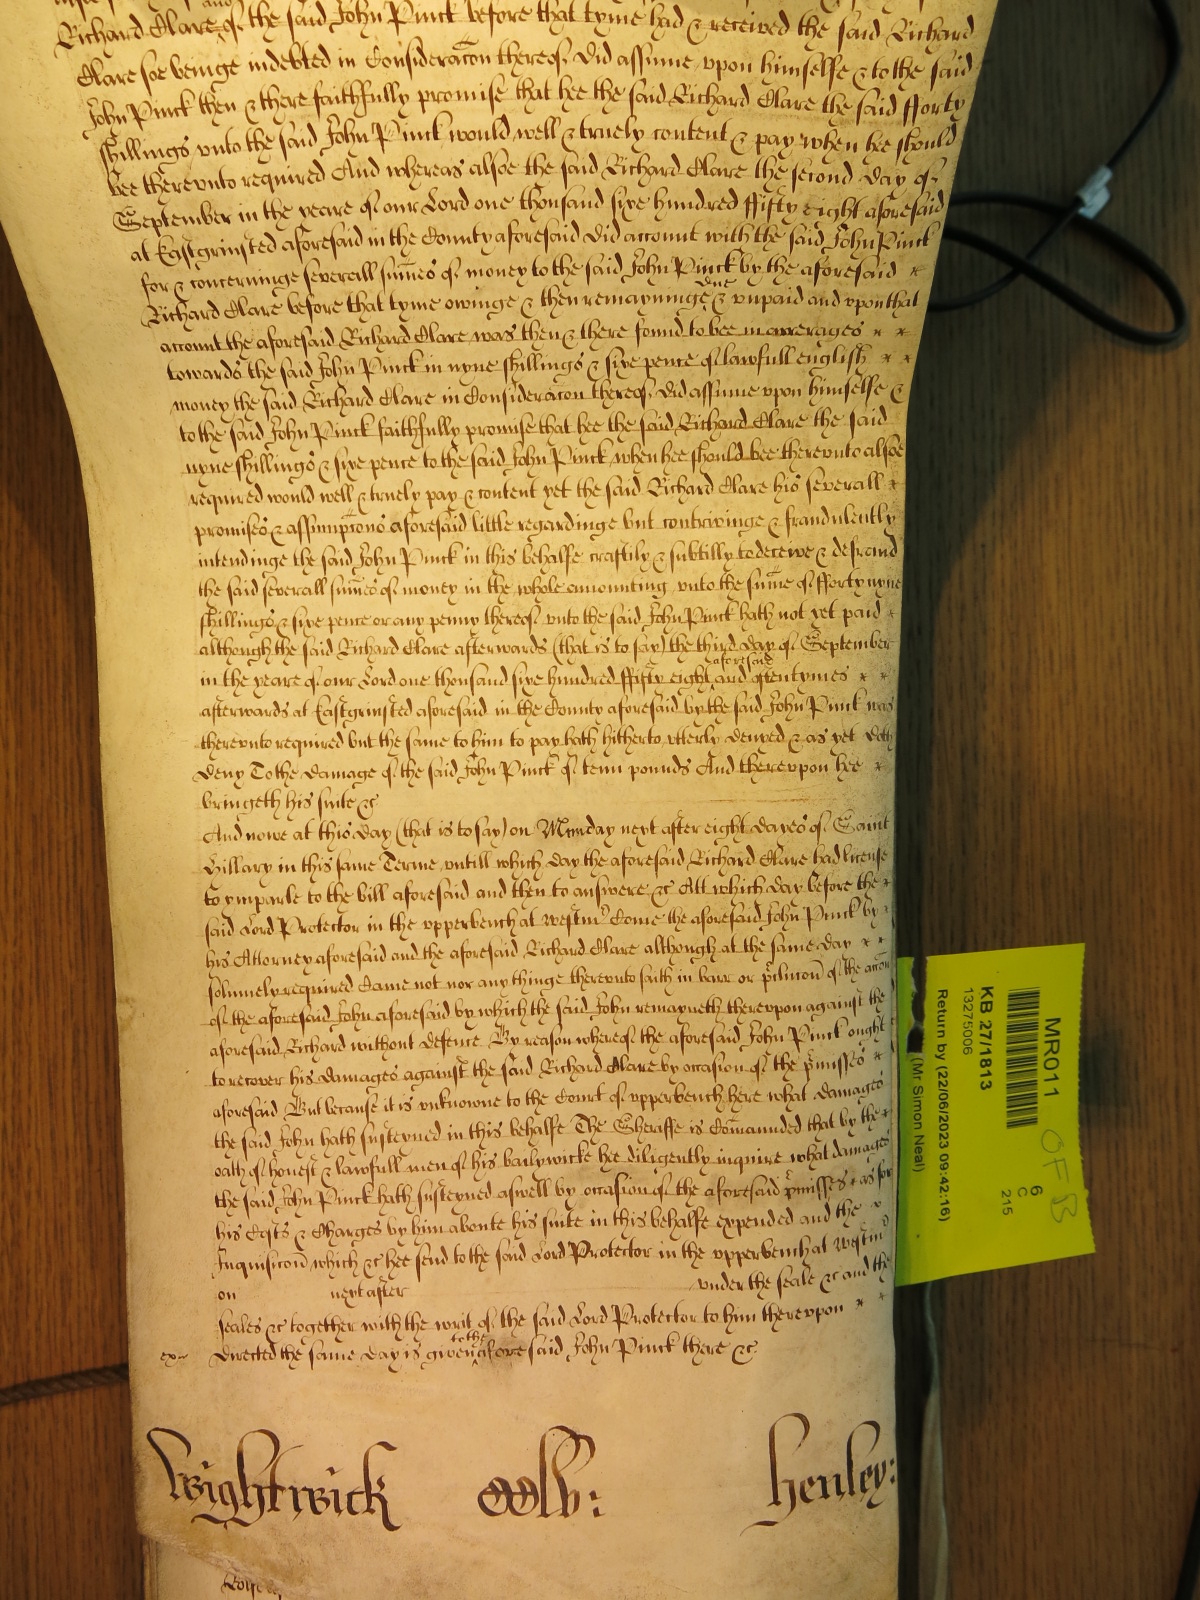 and
Richard Clare of the said John Pinck before that tyme had & received the said Richard
Clare soe beinge indebted in Consideracon thereof did assume upon himselfe & to the said
John Pinck then & there faithfully promise that hee the said Richard Clare the said fforty
shillings vnto the said John Pinck would well & truely content & pay when he should
bee therevnto required And whereas alsoe the said Richard Clare the second day of
September in the yeare of our Lord one thousand sixe hundred ffifty eight aforesaid
at Eastgrinsted aforesaid in the County aforesaid did account with the said John Pinck
for & concerninge severall sumes of money to the said John Pinck by the aforesaid
Richard Clare before that tyme owinge & then remayninge due & vnpaid and vpon that
account the aforesaid Richard Clare was then & there found to bee in arrerages
towards the said John Pinck in nyne shillings & sixe pence of lawfull english
money the said Richard Clare in Consideracon thereof did assume vpon himselfe &
to the said John Pinck faithfully promise that hee the said Richard Clare the said
nyne shillings & sixe pence to the said John Pinck when hee should bee therevnto alsoe
required would well & truely pay & content yet the said Richard Clare his severall
promises & assumpcons aforesaid little regardinge but contrivinge & fraudulently
intendinge the said John Pinck in this behalfe craftily & subtilly to deceive & defraud
the said severall sumes of money in the whole amounting vnto the sume of fforty nyne
shillings & sixe pence or any penny thereof vnto the said John Pinck hath not yet paid
although the said Richard Clare afterwards (that is to say) the third day of September
in the yeare of our Lord one thousand sixe hundred ffifty eight aforesaid and oftentymes
afterwards at Eastgrinsted aforesaid in the County aforesaid by the said John Pinck was
therevnto required but the same to him to pay hath hitherto vtterly denyed & as yet doth
deny To the damage of the said John Pinck of tenn pounds And therevpon hee
bringeth his suite &c
And nowe at this day (that is to say) on Munday next after eight dayes of Saint
Hillary in this same Terme vntill which day the aforesaid Richard Clare had license
to ymparle to the bill aforesaid and then to answere &c Att which day before the
said Lord Protector in the vpperbench at Westmr Come the aforesaid John Pinck by
his Attorney aforesaid and the aforesaid Richard Clare although at the same day
solemnely required Came not nor any thinge therevnto saith in barr or pclusion of the accon
of the aforesaid John aforesaid by which the said John remayneth therevpon against the
aforesaid Richard without defence By reason whereof the aforesaid John Pinck ought
to recover his damages against the said Richard Clare by occasion of the pmisses
aforesaid But because it is vnknowne to the Court of vpperbench here what damages
the said John hath susteyned in this behalfe The Sheriffe is Comaunded that by the
oath of honest & lawfull men of his bailywicke hee diligently inquire what damages
the said John Pinck hath susteyned aswell by occasion of the aforesaid pmisses as for
his Costs & Charges by him aboute his suite in this behalfe expended and the
Inquisicon which &c hee send to the said Lord Protector in the vpperbench at Westmr
on next after under the seale &c and the
seales &c together with the writ of the said Lord Protector to him therevpon
directed the same day is given to the aforesaid John Pinck there &c
Wightwick
henley:
MR011
KB 27/1813
13275006
Return by (22/06/2023 09:42:16)
(Mr Simon Neal)
6
C
215
OFB